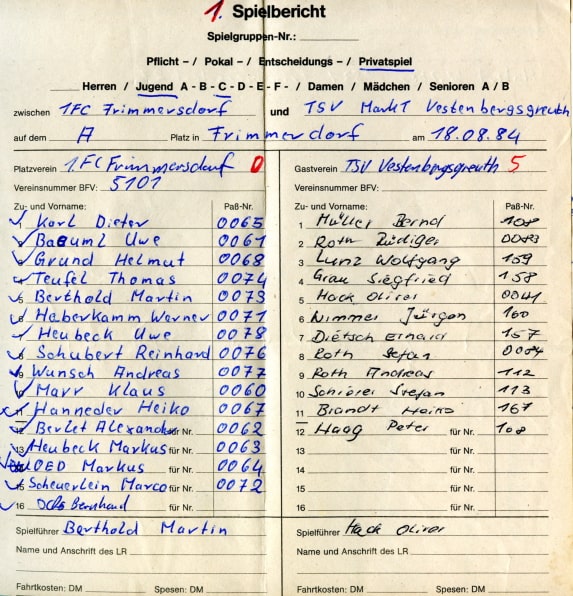 1. Spielbericht
Spielgruppen-Nr.:
Pflicht - / Pokal - / Entscheidungs - / Privatspiel
Herren / Jugend A - B - C - D - E - F - / Damen / Mädchen / Senioren A / B
zwischen 1FC Frimmersdorf und TSV Markt Vestenbergsgreuth
auf dem A Platz in Frimmerdorf am 18.08.84
Platzverein 1.FC Frimmersdorf 0
Vereinsnummer BFV: 5101
Zu- und Vorname: Paß-Nr.
1 Karl Dieter 0065
Bäuml Uwe 0061
Grund Helmut 0068
Teufel Thomas 0074
5 Berthold Martin 0073
Haberkamm Werner 0071
Heubeck Uwe 0078
Schubert Reinhard 0076
9 Wunsch Andreas 0077
10 Marr Klaus 0060
11 Hanneder Heiko 0067
12 Berlet Alexander für Nr. 0062
13 Heubeck Markus für Nr. 0063
OED Markus für Nr. 0064
15 Scheuerlein Marco für Nr. 0072
16 Bernhard für Nr.
Spielführer Berthold Martin
Name und Anschrift des LR
Fahrtkosten: DM Spesen: DM
Gastverein TSV Vestenbergsgreuth 5
Vereinsnummer BFV:
Zu- und Vorname: Paß-Nr.
1 Müller Bernd 108
2 Roth Rüdiger 0083
3 Lunz Wolfgang 159
4 Grau Siegfried 158
5 Hack Oliver 0041
6 Nimmer Jürgen 160
7 Dietsch 157
8 Roth Stefan
9 Roth Andreas 112
10 Stefan 113
11 Brandt Heiko 167
12 Haag Peter für Nr. 108
13 für Nr.
14 für Nr.
15 für Nr.
16 für Nr.
Spielführer Hack Oliver
Name und Anschrift des LR
Fahrtkosten: DM Spesen: DM